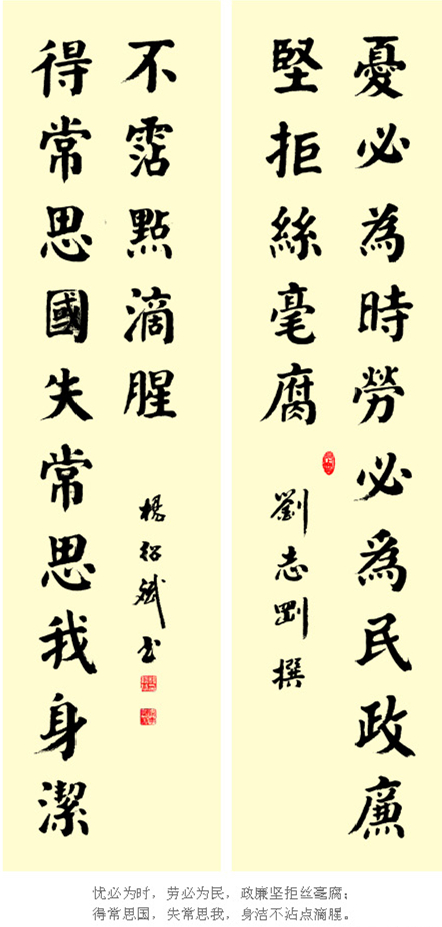 憂必為時勞必爲民政廉
堅拒絲毫腐
劉志剛撰
得常思國失常思我身潔
不霑點滴腥
楊紹斌书
忧必为时，劳必为民，政廉坚拒丝毫腐；
得常思国，失常思我，身洁不沾点滴腥。